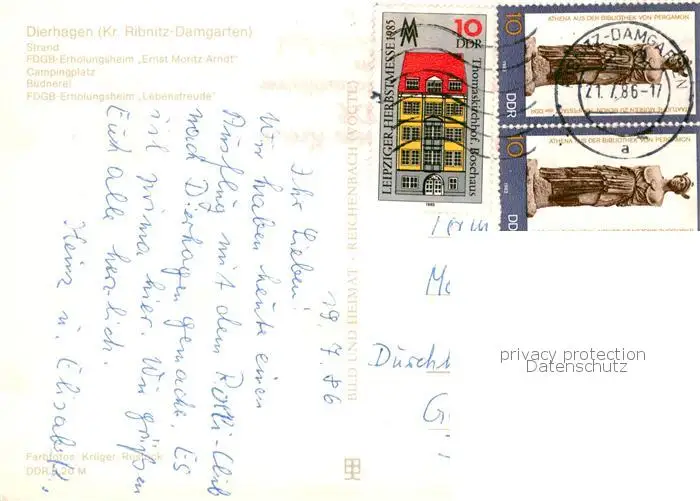 Dierhagen (Kr. Ribnitz-Damgarten)
Strand
FDGB-Erholungsheim „Ernst Moritz Arndt"
Campingplatz
Büdnerei
FDGB-Erholungsheim „Lebensfreude"
19. 7. 86
Ihr Lieben!
Wir haben heute einen
Ausflug mit dem Rolli-Club
nach Dierhagen gemacht. Es
ist prima hier. Wir grüßen
Euch alle herzlich.
Heinz u. Elisabeth.
Farbfotos Krüger
DDR 0,20 M
BILD UND HEIMAT · REICHENBACH (VOGTL)
LEIPZIGER HERBSTMESSE 1985
10
DDR
Thomaskirchhof, Bosehaus
1985
ATHENA AUS DER BIBLIOTHEK VON PERGAMON
10
DDR
STAATLICHE MUSEEN ZU BERLIN
ATHENA AUS DER BIBLIOTHEK VON PERGAMON
10
DD
ITZ-DAMGARTEN
21. 7. 86-17
a
privacy protection
Datenschutz